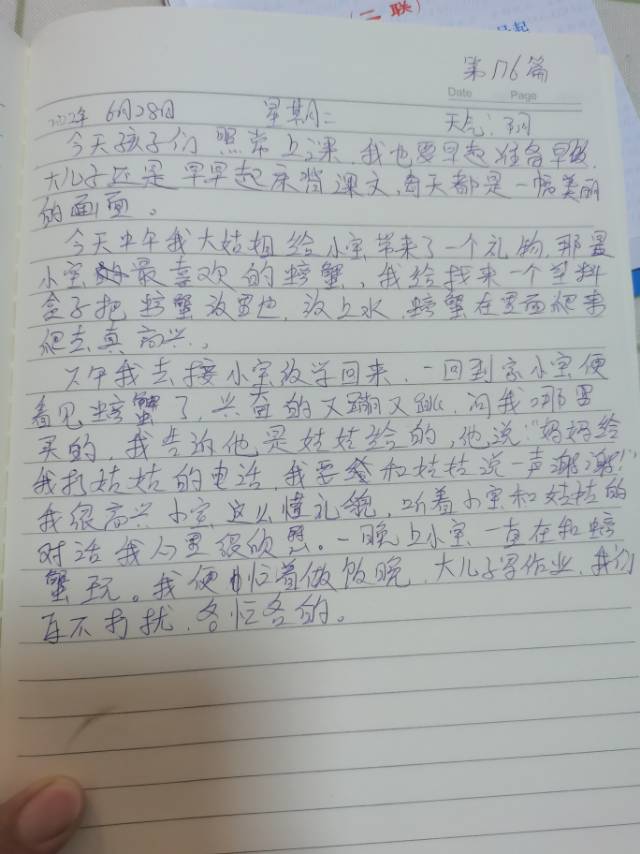 (二联)
第176篇
Date Page
2022年 6月28日 星期二 天气:阴
今天孩子们照常上课,我也要早起准备早饭.
大儿子还是早早起床背课文,每天都是一幅美丽
的画面。
今天中午我大姑姐给小宝带来了一个礼物,那是
小宝最喜欢的螃蟹,我给找来一个塑料
盒子把螃蟹放里边,放上水,螃蟹在里面爬来
爬去真高兴.。
下午我去接小宝放学回来,一回到家小宝便
看见螃蟹了,兴奋的又蹦又跳,问我哪里
买的,我告诉他是姑姑给的,他说:"妈妈给
我打姑姑的电话,我要和姑姑说一声谢谢!"
我很高兴小宝这么懂礼貌,听着小宝和姑姑的
对话我心里很欣慰。一晚上小宝一直在和螃
蟹玩。我便忙着做饭晚,大儿子写作业,我们
互不打扰,各忙各的。